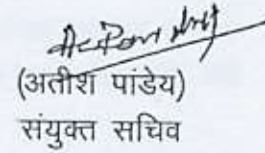 (अतीश पांडेय)
संयुक्त सचिव